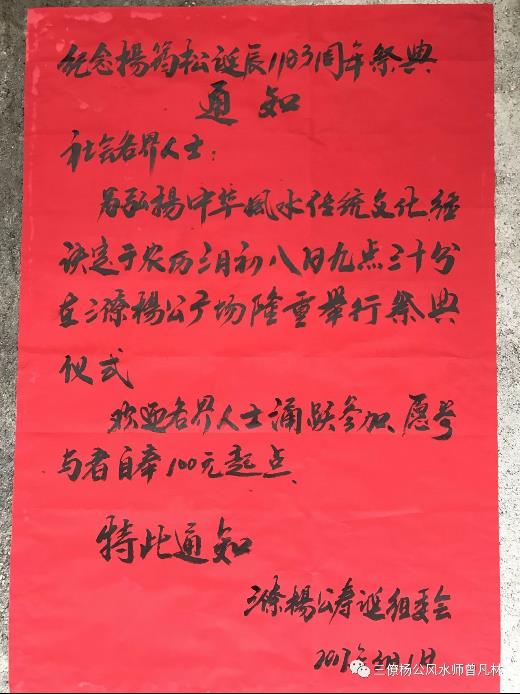 纪念楊筠松誕辰1183周年祭典
通知
社会各界人士:
为弘揚中华风水传统文化经
决定于农历三月初八日九点三十分
在三僚楊公广场隆重举行祭典
仪式
欢迎各界人士涌跃参加,愿参
与者自奉100元起点.
特此通知
三僚楊公寿诞组委会
2017年3月1日
三僚杨公风水师曾凡林